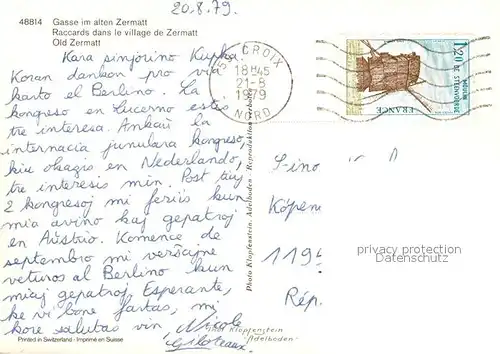 20.8.79.
48814 Gasse im alten Zermatt
Raccards dans le village de Zermatt
Old Zermatt
Kara sinjorino Kupka.
Koran dankon pro via
karto el Berlino. La
kongreso en Lucerno estis
tre interesa. Ankaŭ la
internacia junulara kongreso,
kiu okazis en Nederlando,
tre interesis min. Post tiuj
2 kongresoj mi feriis kun
mia avino kaj gepatroj
en Aŭstrio. Komence de
septembro mi verŝajne
veturos al Berlino kun
miaj gepatroj. Esperante,
ke vi bone fartas, mi
kore salutas vin, Nicole
Printed in Switzerland - Imprimé en Suisse
Photo Klopfenstein, Adelboden - Reproduktion verboten
CROIX
18H45
21-8
1979
NORD
1,20
MOULIN
DE STEENVOORDE
FRANCE
S-ino
Köpen
119
Rép.
privacy protection
Datenschutz
Klopfenstein
Adelboden